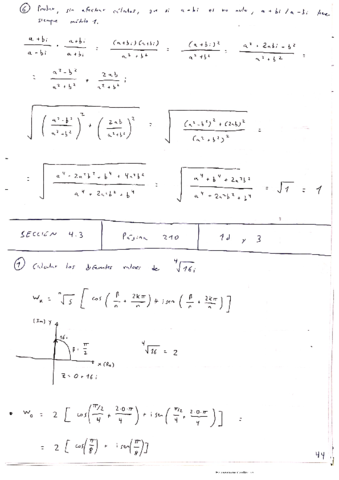 ⑥ Probar, sin efectuar cálculos, que si a+bi es no nulo, a+bi / a-bi tiene
siempre módulo 1.
a+bi / a-bi · a+bi / a+bi = (a+bi)(a+bi) / a²+b² = (a+bi)² / a²+b² = a² + 2abi - b² / a²+b² =
= a²-b² / a²+b² + 2ab / a²+b² i
√( (a²-b² / a²+b²)² + (2ab / a²+b²)² ) = √( (a²-b²)² + (2ab)² / (a²+b²)² ) =
= √( a⁴ - 2a²b² + b⁴ + 4a²b² / a⁴ + 2a²b² + b⁴ ) = √( a⁴ + b⁴ + 2a²b² / a⁴ + 2a²b² + b⁴ ) = √1 = 1
SECCIÓN 4.3 Página 210 1d y 3
① Calcular los diferentes valores de ⁴√16i
[cos(β/n + 2kπ/n) + i sen(β/n + 2kπ/n)]
(Im) y
16i
β = π/2
⁴√16 = 2
x (Re)
z = 0 + 16i
• W₀ = 2 [cos(π/2 / 4 + 2·0·π / 4) + i sen(π/2 / 4 + 2·0·π / 4)] =
= 2 [cos(π/8) + i sen(π/8)]
44